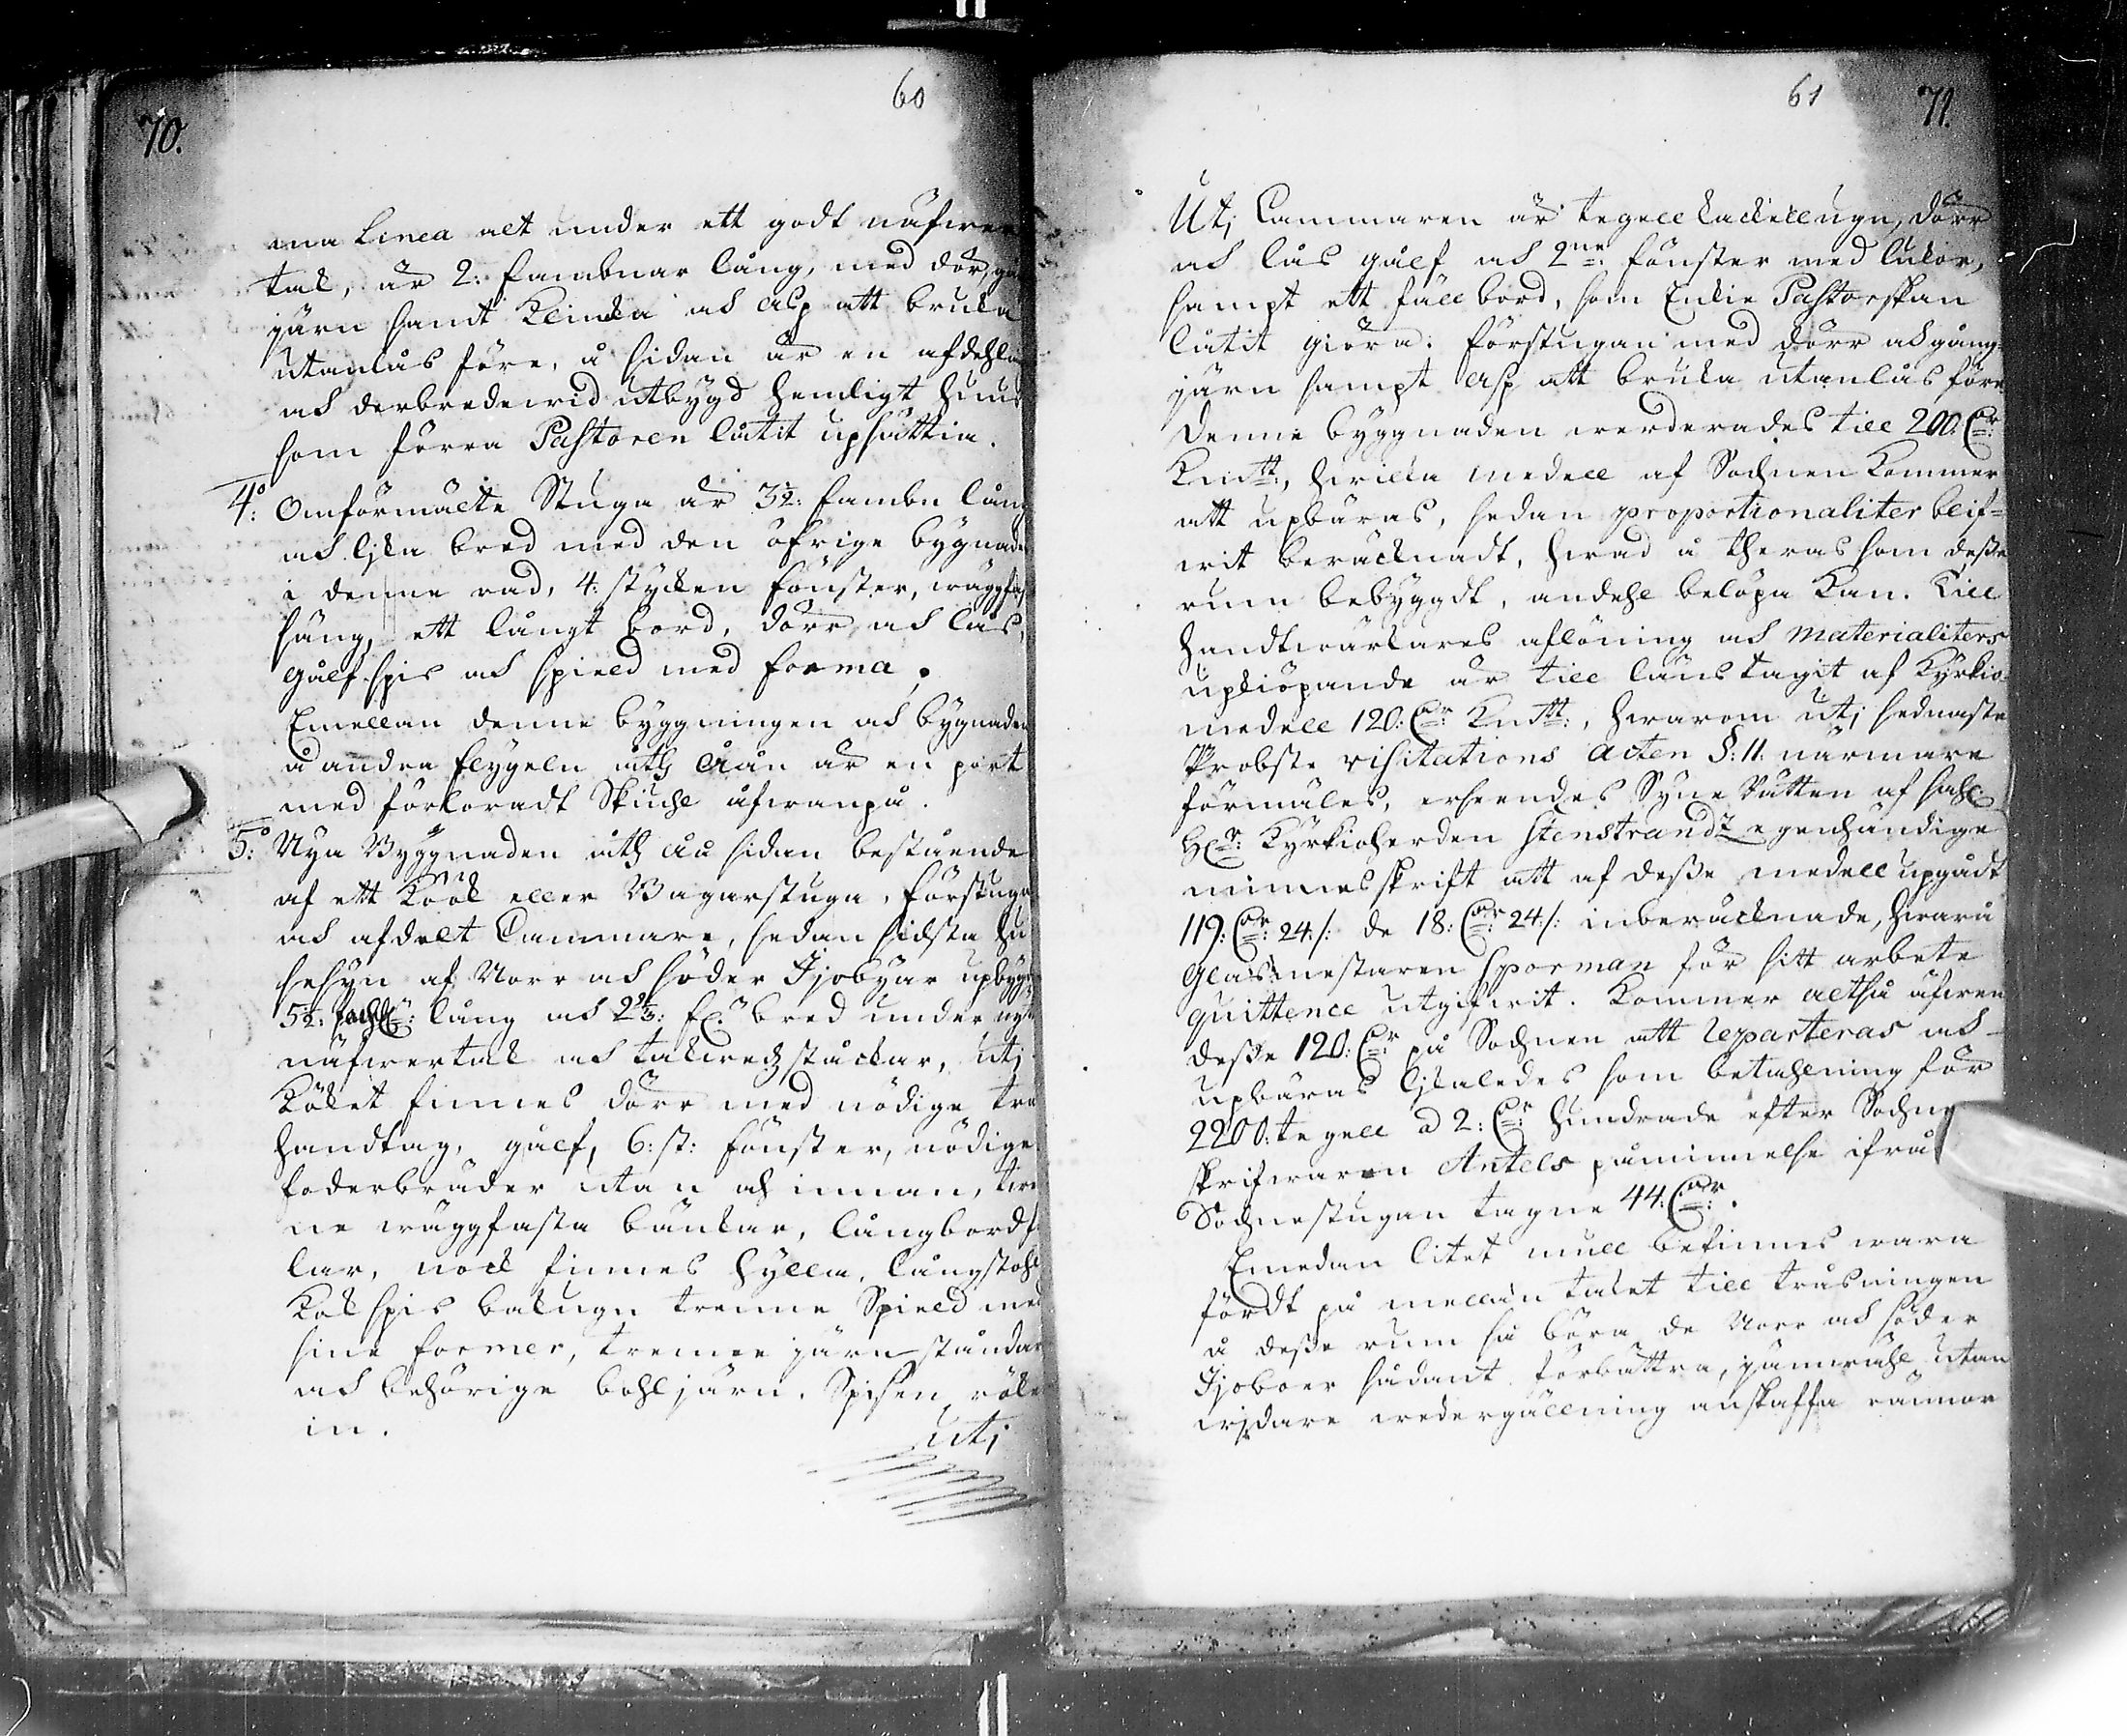 70.
60
ena Linea alt under ett godt näfwer
tak, är 2: fambnar lång, med dör, gång
järn samt Klinka och Asp att bruka
utanlås före, å sidan är en afdehlan
och derbredewid utbygd hemligt huus
som förra Pastoren låtit upsättia.
4:o Omförmälte Stuga är 3½: fambn lång
och lika bred med den öfrige bygnaden
i denne rad, 4: stycken fönster, wäggfast
säng, ett långt bord, dörr och lås,
gålf. spis och spield med forma.
Emellan denne byggningen och bygnaden
å andra flygeln åth Åån är en port
med förloradt Skiuhl ofwanpå.
5:o Nya Byggnaden åth Åå sidan bestående
af ett Köök eller Bagarstuga, förstuga
och afdelt Cammare, sedan sidsta hu
sesyn af Norr och Söder Ijoboar upbygd
5½: lång och 2⅔: f: bred under nytt
näfwertak och takwedz stäckar, uti
Köket finnes dörr med nödige tre
handtag, gålf, 6: st: fönster, nödige
foderbräder utan och innan, twe
ne wäggfasta bänkar, långbord
lar, nock finnes hylla, långstohl
Kok spis bakugn trenne Spield med
sine former, trenne järn ständer
och behörige bohljärn. Spisen röke
in.
Uti
61
71.
Uti Cammaren är tegell kackellugn, dörr
och lås gålf och 2ne: fönster med lukor,
sampt ett fäll bord, som Enkie Pastorskan
låtit giöra. förstugan med dörr och gång-
järn sampt Asp att bruka utanlås före
Denne byggnaden werderades till 200. Dr:
Kmtt:, hwilka medell af Sochnen Kommer
att upbäras, sedan proportionaliter blif-
wit beräcknadt, hwad å theras som desse
rum bebyggdt, andehl belöpa Kan. Till
handtwärkares aflöning och Materialiters
upkiöpande är till låns tagit af Kyrkio
medell 120: Dr: Kmtt:, hwarom uti sednaste
Probste visitations Acten §: 11. närmare
förmäles, erseendes Syne Rätten af Sahl
Hr: Kyrkioherden Stenstrandz egenhändige
minnesskrift att af desse medell upgådt
119: Dr: 24./: de 18: Dr: 24/: inberäcknade, hwarå
Glasmestaren Sporman för sitt arbete
quittence utgifwit. Kommer altså äfwen
desse 120: Dr på Sochnen att reparteras och
upbäras likaledes som betahlning för
2200: tegell à 2: Dr: hundrade efter Sochne
skrifwaren Antels påminnelse ifrån
Sochnestugan tagne 44: Dr:.
Emedan litet mull befinnes wara
fördt på mellan taket till trasningen
å desse rum så böra de Norr och Söder
Ijoboer sådant förbättra, jämwähl utan
widare wedergällning anskaffa rännor